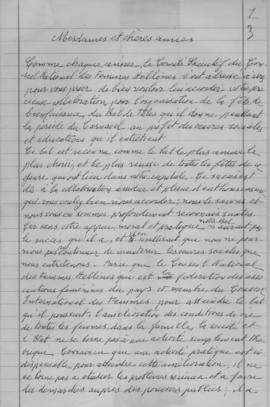 1
3
Mesdames et chères amies
Comme chaque année, le Comité Exécutif du Con-
seil National des Femmes Hellènes s'est adressé à vous
pour vous prier de bien vouloir lui accorder votre pré-
cieuse collaboration pour l'organisation de la fête de
bienfaisance, du Bal de Têtes qu'il donne pendant
la période du Carnaval au profit des œuvres sociales
et éducatives qu'il entretient.
Ce bal est connu comme le bal le plus animé, le
plus choisi, et le plus réussi de toutes les fêtes de ce
genre qui ont lieu dans notre capitale. Ce succès est
dû à la collaboration assidue et pleine d'enthousiasme
que vous voulez bien nous accorder; nous le savons et
nous vous en sommes profondément reconnaissantes.
Car sans votre appui moral et pratique notre Bal n'aurait pas
le succès qu'il a, et il s'ensuivrait que nous ne pour-
rions pas continuer de subvenir les œuvres sociales que
nous entretenons. Parce que le Conseil National
des Femmes Hellènes qui est la fédération des asso-
ciations féminines du pays et membre du Conseil
International des Femmes pour atteindre le but
qu'il poursuit, l'amélioration des conditions de vie
de toutes les femmes dans la famille, la société et
l'Etat ne se borne pas à une activité simplement théo-
rique. Convaincu que une activité pratique est in-
dispensable pour atteindre cette amélioration, il ne
se borne pas à étudier les problèmes sociaux et à faire
des démarches auprès des pouvoirs publics; il a